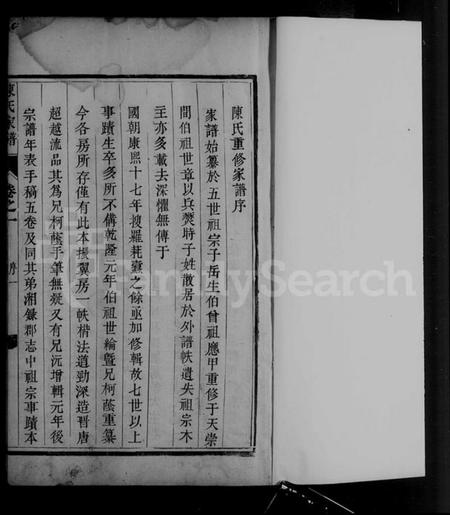 陳氏重修家譜序
家譜始纂於五世祖宗子岳生伯曾祖應甲重修于天崇
間伯祖世章以兵燹時子姓散居於外譜帙遺失祖宗木
主亦多載去深懼無傳于
國朝康熙十七年搜羅耗蠹之餘重加修輯故七世以上
事蹟生卒多所不備乾隆元年伯祖世綸暨兄柯蔭重纂
今各房所存僅有此本援翼房一帙楷法遒勁深造晉唐
超越流品其為兄柯蔭手筆無疑又有兄沅增輯元年後
宗譜年表手稿五卷及同其弟湘錄郡志中祖宗事蹟本
陳氏家譜
卷之一
FamilySearch